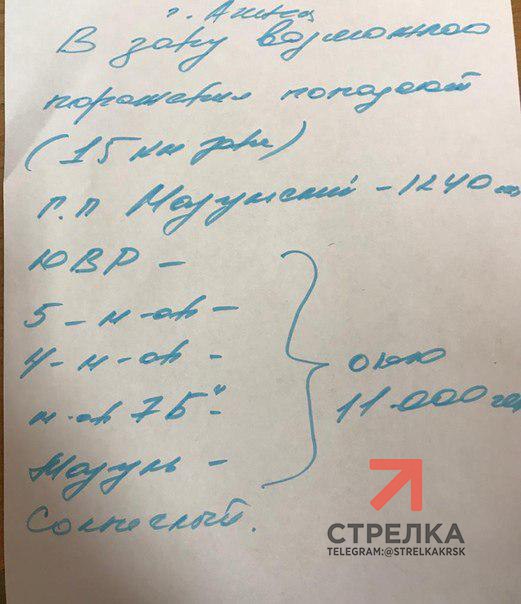 г. Ачинск
В зону возможного
поражения попадают
(15 км зона)
п.п Мазульский - 1240 чел
ЮВР -
5 - м-он -
4 - м - он -
м-он 7Б" -
Мазуль -
Солнечный.
около
11.000 чел
СТРЕЛКА
TELEGRAM:@STRELKAKRSK